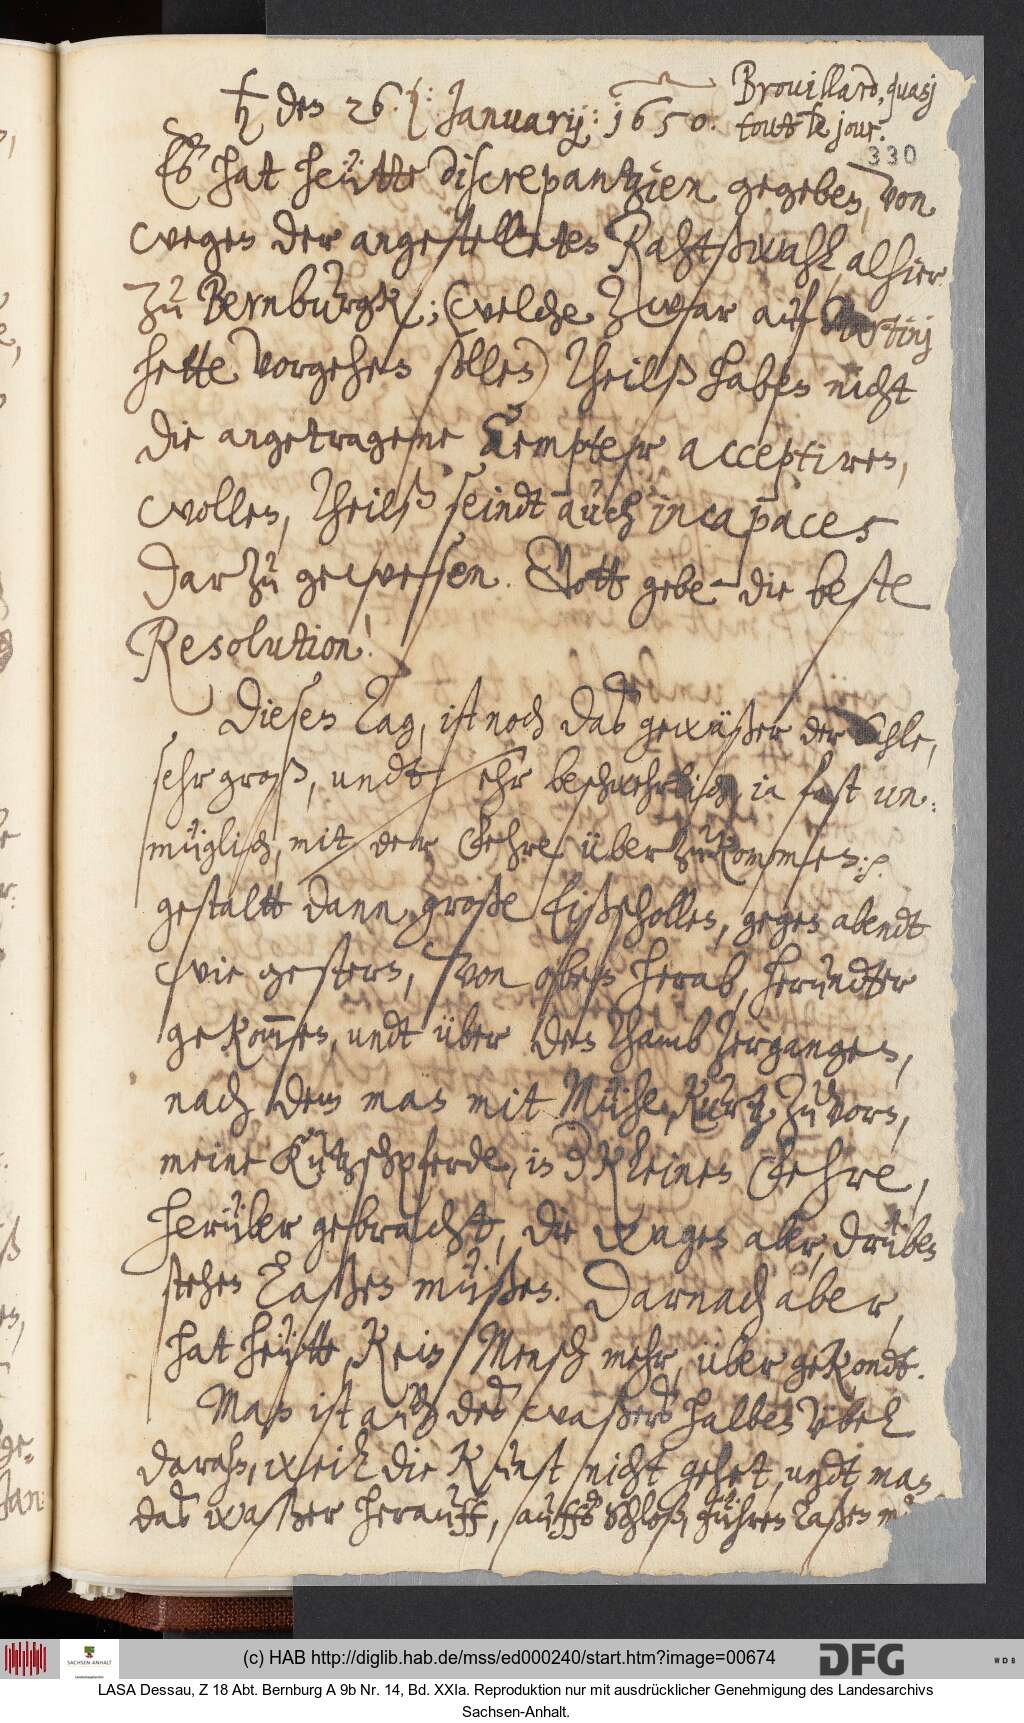 ♄ den 26. Januarij: 1650. Brouillard, quasj
tout le jour.
330
Es hat heütte discrepantzien gegeben, von
wegen der angestelleten Rahtßwahl alhier
zu Bernburgk; (welche zwar auf Martinj
hette vorgehen sollen) theilß haben nicht
die angetragene Aempter acceptiren,
wollen, theilß seindt auch incapaces
darzu gewesen. Gott gebe die beste
Resolution!
Diesen Tag, ist noch das gewäßer der Sahle,
sehr groß, undt sehr beschwehrlich, ia fast un¬
müglich, mit der Fehre über zukommen:
gestaltt dann große Eißschollen, gegen abendt
wie gestern, von oben herab, herundter
gekom̅en, undt über den Thamb hergangen,
nach dem man mit Mühe, kurtz zuvorn,
meine Kutzschpferde, in kleinen Fehre,
herüber gebracht, die wagen aber, drüben
stehen laßen müßen. Darnach aber,
hat heütte, kein Mensch mehr, über gekondt.
Man ist auch des waßers halben übel
daran, weil die Kunst nicht gehet, undt man
das waßer herauff, auffs Schloß, führen laßen
(c) HAB http://diglib.hab.de/mss/ed000240/start.htm?image=00674
SACHSEN-ANHALT
DFG
WDB
LASA Dessau, Z 18 Abt. Bernburg A 9b Nr. 14, Bd. XXIa. Reproduktion nur mit ausdrücklicher Genehmigung des Landesarchivs
Sachsen-Anhalt.